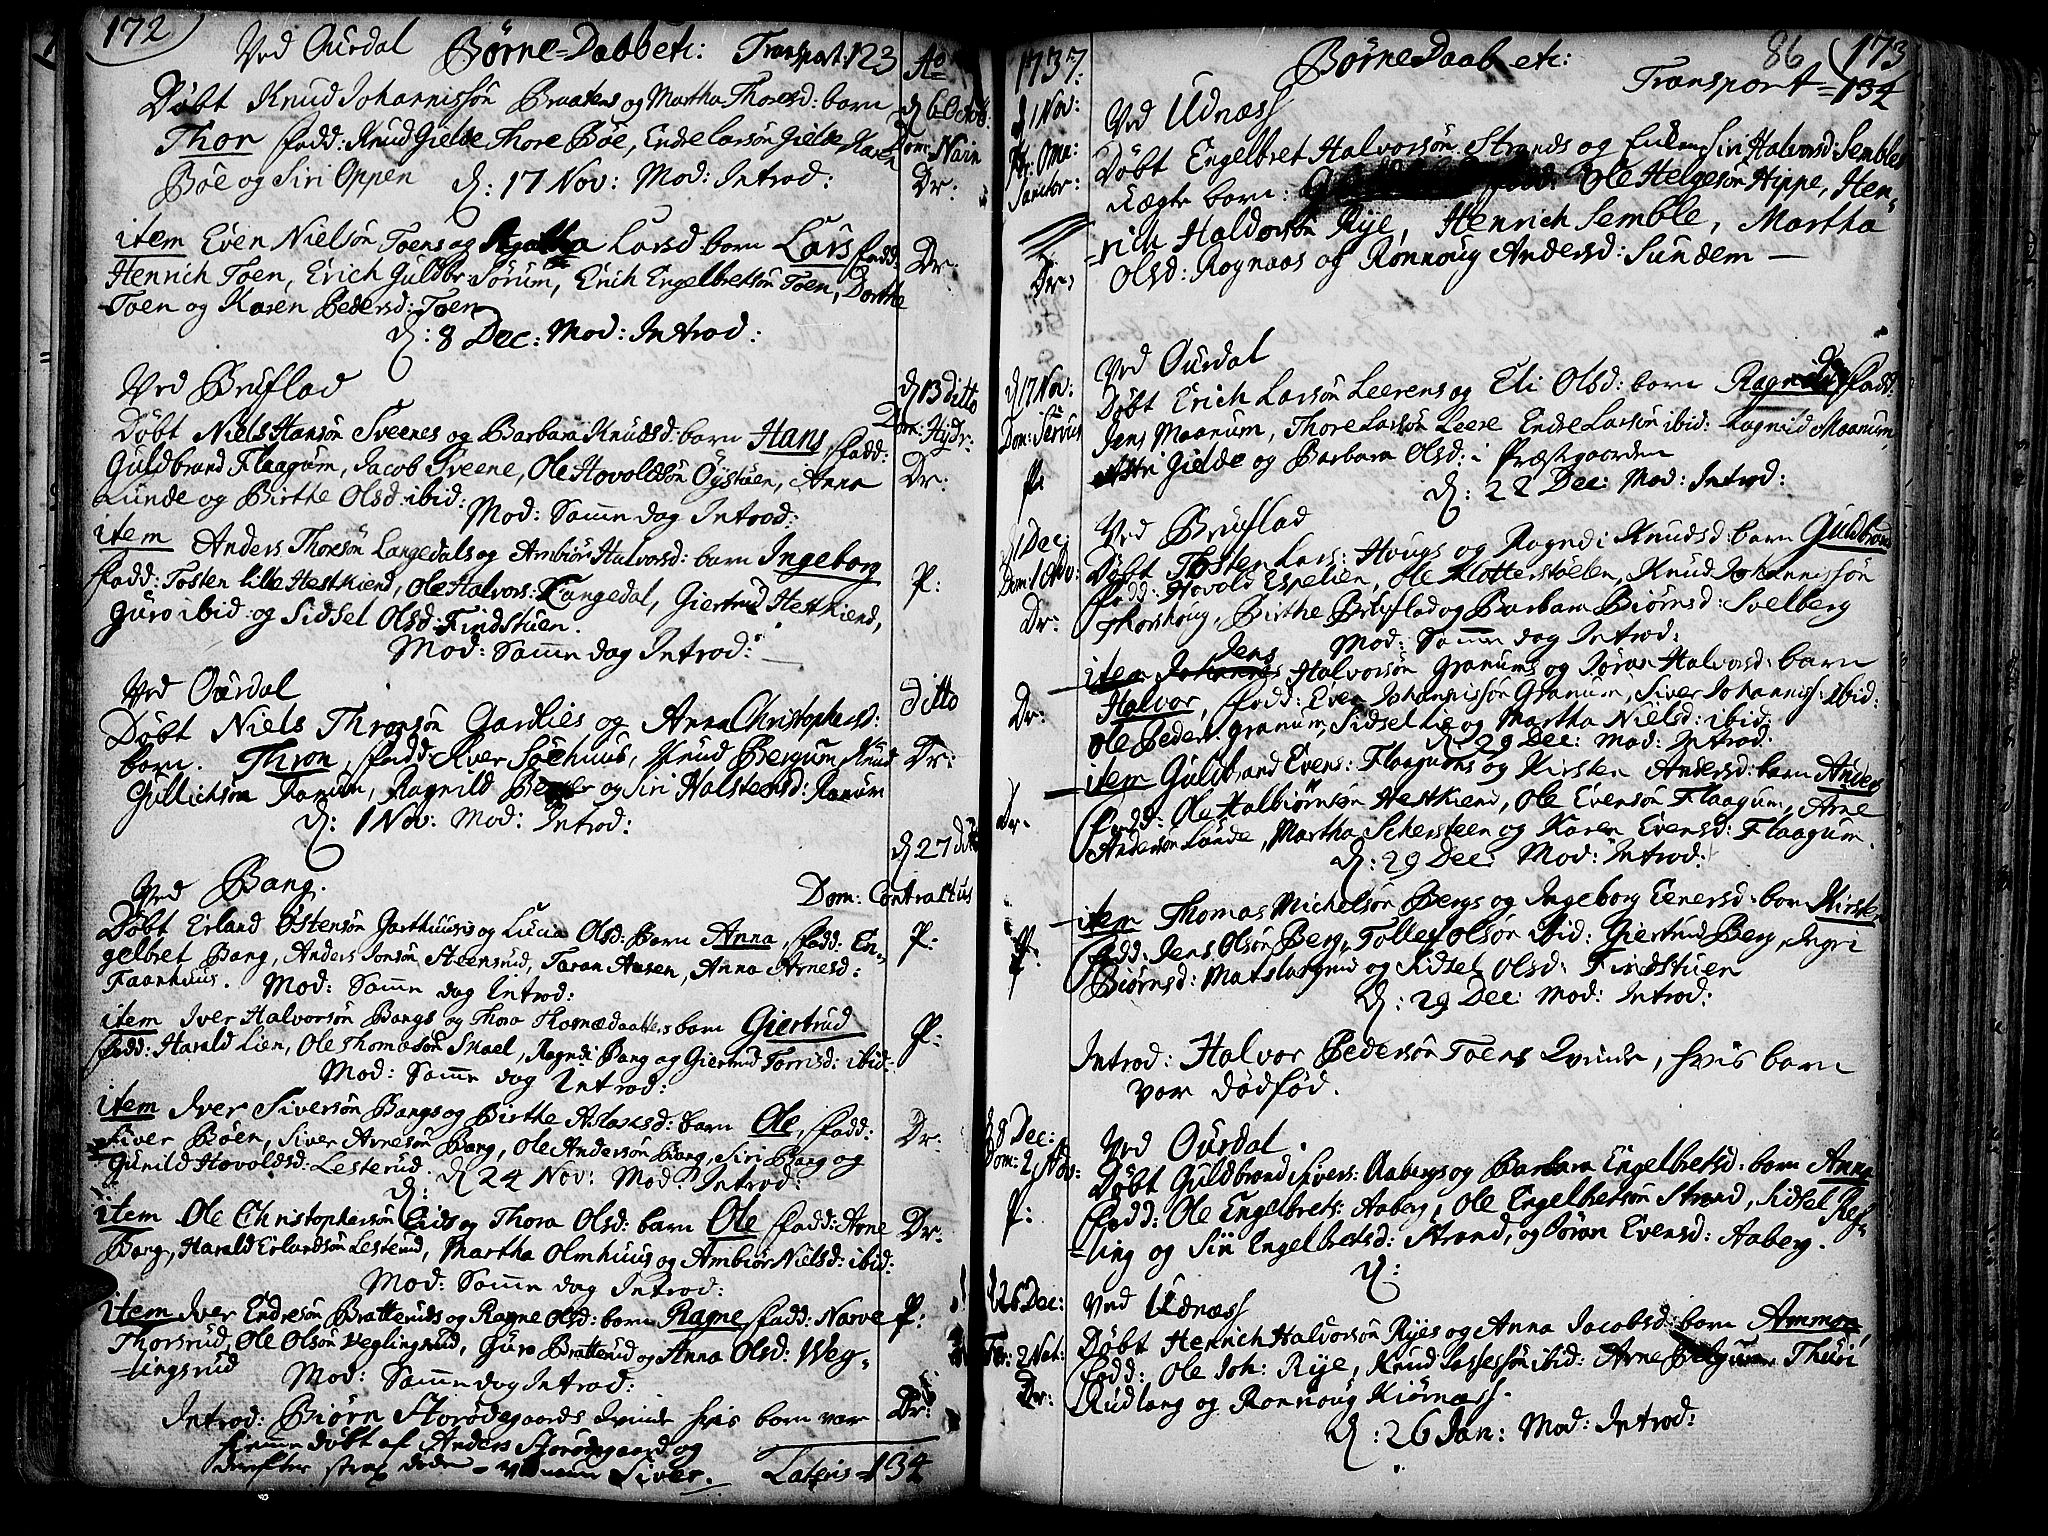 172
Ved Ourdal Børne-Daab etc: Transport: 123 Ao
Døbt Knud Johannissøn Braatens og Martha Thoresd: barn d 6 Octob:
Thor fadd: Knud Gielde Thore Bøe, Endre Larsøn Gielde, Karen Dom: Nain
Bøe og Siri Oppen d: 17 Nov: Mod: Introd: Dr:
item Even Nielsøn Toens og Agatha Larsd: barn Lars fadd: Dr:
Henrich Toen, Erich Guldbr: Sørum, Erich Engelbretsøn Toen, Dorthe
Toen og Karen Pedersd: Toen
d: 8 Dec: Mod: Introd:
Ved Bruflad d 13 ditto
Døbt Niels Hansøn Sveenes og Barbara Knudsd: barn Hans fadd: Dom: Hydr:
Guldbrand Flaagum, Jacob Sveene, Ole Hovoldsøn Øystuen, Anna Dr:
Lunde og Birthe Olsd: ibid: Mod: Samme dag Introd:
item Anders Thoresøn Langedals og Ambiør Halvorsd: barn Ingeborg
fadd: Tosten lille Hestkiend, Ole Halvors: Langedal, Giertrud Hestkiend, P:
Guro ibid: og Sidsel Olsd: Findstuen.
Mod: Samme dag Introd:
Ved Ourdal ditto
Døbt Niels Thronsøn Gardlies og Anna Christophersd:
barn. Thron, fadd: Iver Søehuus, Knud Bergum, Knud Dr:
Gullichsøn Fonum, Ragnild og Siri Halstensd: Ranum
d: 1 Nov: Mod: Introd:
d 27 ditto
Ved Bang. Dom: Contraitus
Døbt Erland Østensøn Garthuusis og Lucia Olsd: Barn Anna, fadd: En- P:
gelbret Bang, Anders Jonsøn Steensrud, Taran Aasen, Anna Arnesd:
Faanhuus. Mod: Samme dag Introd:
item Iver Halvorsøn Bangs og Thora Thomædaatters barn Giertrud
fadd: Harald Lien, Ole Thomasøn Snael, Ragndi Bang og Giertrud Torrisd: ibid: P:
Mod: Samme dag Introd:
item Iver Siversøn Bangs og Birthe Aslaksd: barn Ole, fadd:
Siver Bøen, Siver Arnesøn Bang, Ole Andersøn Bang, Siri Bang og Dr:
Gunild Hovoldsd: Lesterud. d 24 Nov: Mod: Introd:
item Ole Christophersøn Eids og Thora Olsd: barn Ole fadd: Arne Dr:
Bang, Harald Erlandsøn Lesterud, Martha Olmhuus og Ambiør Nielsd: ibid:
Mod: Samme dag Introd:
item Iver Endresøn Bratteruds og Ragne Olsd: barn Ragne fadd: Narve P:
Thorsrud, Ole Olsøn Veglingsrud, Guro Bratterud og Anna Olsd: Weg-
-lingsrud
Mod: Samme dag Introd:
Introd: Biørn Storødegaards Qvinde hvis barn var Dr:
hiemme døbt af Anders Storødegaard og
derefter strax døde - ved navn Siver. Lateris = 134
1737. Børne Daab etc: 86 173
Transport = 134
d 1 Nov: Ved Udnæss
Fest: Oma: Døbt Engelbret Halvorsøn Strands og Enken Siri Halvorsd: Sembles
Sanctor: uægte barn: fadd: Ole Helgesøn Hippe, Hen-
-rich Haldorsøn Rye, Henrich Semble, Martha
Dr: Olsd: Rognaas og Rønnoug Andersd: Sundem
Ved Ourdal
d 17 Nov: Døbt Erich Larsøn Leerens og Eli Olsd: barn Ragnild fadd:
Dom: Servus Jens Maanum, Thore Larsøn Leere Endre Larsøn ibid: Ragnild Maanum,
P. Giøde og Barbara Olsd: i Præstgaarden
d: 22 Dec: Mod: Introd:
d 1 Dec: Ved Bruflad
Dom: 1 Adv: Døbt Tosten Lars: Hougs og Ragndi Knudsd: barn Guldbrand
fadd: Hovold Espelien, Ole Klotterstøelen, Knud Johannissøn
Dr: Thorshoug, Birthe Bruflad og Barbara Biørnsd: Svelberg
Mod: Samme dag Introd:
item Jens Halvorsøn Granums og Jøran Halvorsd: barn
Dr: Halvor, fadd: Even Johannissøn Granum, Siver Johanniss: ibid:
Ole Peders: Granum, Sidsel Lie og Martha Nielsd: ibid:
d: 29 Dec: Mod: Introd:
item Guldbrand Evens: Flaagums og Kirsten Andersd: barn Anders
Dr. fadd: Ole Halbiørnsøn Hestkiend, Ole Evensøn Flaagum, Arne
Andersøn Lunde, Martha Skiersteen og Karen Evensd: Flaagum.
d: 29 Dec: Mod: Introd:
item Thomas Michelsøn Bergs og Ingeborg Eenersd: barn Kirsten
P. fadd: Jens Olsøn Berg, Tollef Olsøn ibid: Giertrud Berg, Ingri
Biørnsd: Matslasgrud og Sidsel Olsd: Findstuen
d: 29 Dec: Mod: Introd:
Introd: Halvor Pedersøn Toens Qvinde, hvis barn
var dødfød.
d 8 Dec: Ved Ourdal.
Dom: 2 Adv: Døbt Guldbrand Sivers: Aabergs og Barbara Engelbretsd: barn Anna
P: fadd: Ole Engelbrets: Aaberg, Ole Engelbretsøn Strand, Sidsel Ref-
-ling og Siri Engelbretsd: Strand, og Gøran Evensd: Aaberg.
d:
d 26 Dec: Ved Udnæss
Fer: 2 Nat: Døbt Henrich Halvorsøn Ryes og Anna Jacobsd: barn Ammon
fadd: Ole Joh: Rye, Knud Lassessøn ibid: Arne Thuri
Dr: Rudlang og Ronnoug Kiørnæss.
d: 26 Jan: Mod: Introd: